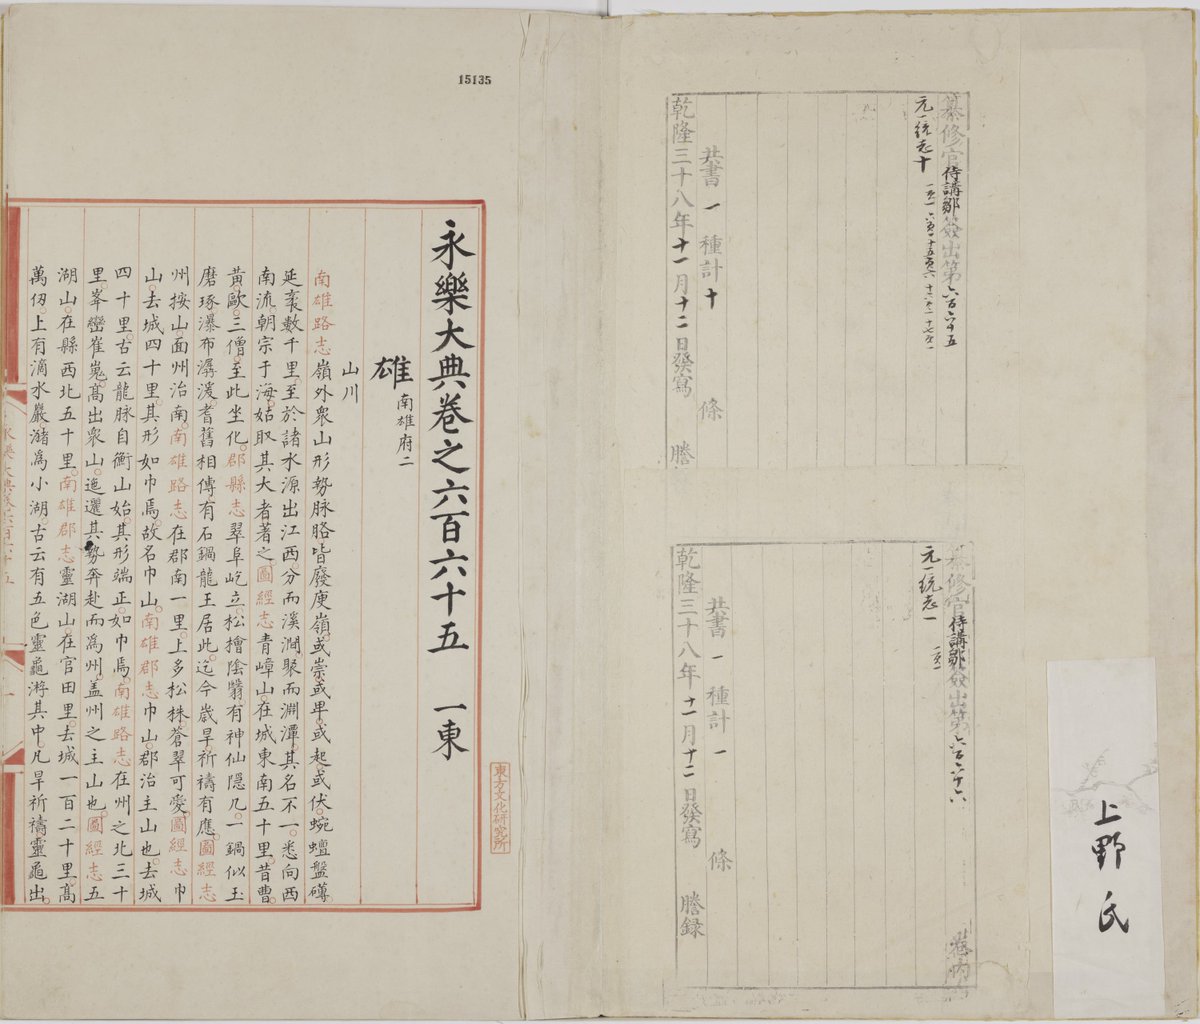 上野氏
纂修官侍講鄒簽出第六百六十五
元一統志十
共書一種計十條
乾隆三十八年十一月十二日發寫 謄
纂修官侍講鄒簽出第六百六十六 卷内
元一統志一
共書一種計一條
乾隆三十八年十一月十二日發寫 謄録
15135
東方文化研究所
永樂大典卷之六百六十五 一東
雄 南雄府二
山川
南雄路志嶺外衆山形勢脉胳皆廢庾嶺或崇或卑或起或伏蜿蟺盤礴
延袤數千里至於諸水源出江西分而溪澗聚而淵潭其名不一悉向西
南流朝宗于海姑取其大者著之圖經志青嶂山在城東南五十里昔曹
黃歐三僧至此坐化郡縣志翠阜屹立松檜陰翳有神仙隱几一鍋似玉
磨琢瀑布潺湲耆舊相傳有石鍋龍王居此迄今歲旱祈禱有應圖經志
州按山面州治南南雄路志在郡南一里上多松株蒼翠可愛圖經志巾
山去城四十里其形如巾焉故名巾山南雄郡志巾山郡治主山也去城
四十里古云龍脉自衡山始其形端正如巾焉南雄路志在州之北三十
里峯巒崔嵬高出衆山迤邐其勢奔赴而為州盖州之主山也圖經志五
湖山在縣西北五十里南雄郡志靈湖山在官田里去城一百二十里高
萬仞上有滴水巖瀦為小湖古云有五色靈龜游其中凡旱祈禱靈龜出
永樂大典卷六百六十五